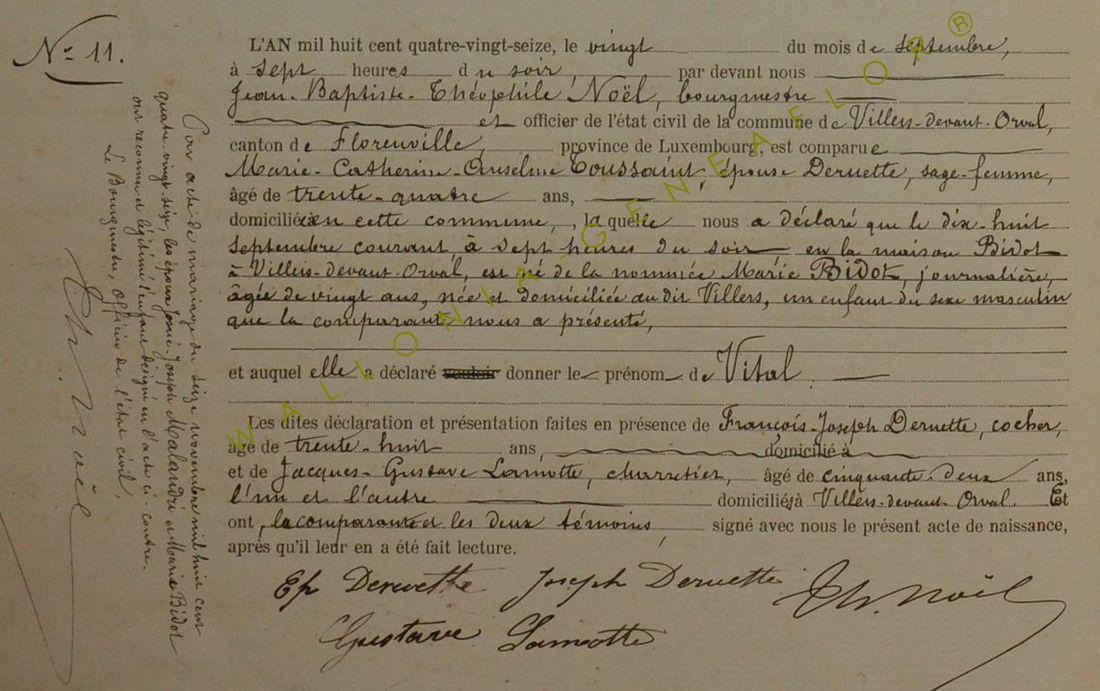 N° 11.
L'AN mil huit cent quatre-vingt-seize, le vingt du mois de septembre,
à sept heures du soir, par devant nous
Jean-Baptiste-Théophile Noël, bourgmestre
et officier de l'état civil de la commune de Villers-devant-Orval,
canton de Florenville, province de Luxembourg, est comparue
Marie-Catherine-Anselme Toussaint, épouse Deruette, sage-femme,
âgé de trente-quatre ans,
domiciliée en cette commune, laquelle nous a déclaré que le dix-huit
septembre courant à sept heures du soir en la maison Bidot
à Villers-devant-Orval, est né de la nommée Marie Bidot, journalière,
âgée de vingt ans, née et domiciliée au dit Villers, un enfant du sexe masculin
que la comparante nous a présenté,
et auquel elle a déclaré vouloir donner le prénom de Vital
Les dites déclaration et présentation faites en présence de François-Joseph Deruette, cocher,
âgé de trente-huit ans, domicilié à
et de Jacques-Gustave Lamotte, charretier, âgé de cinquante-deux ans,
l'un et l'autre domiciliés à Villers-devant-Orval. Et
ont, la comparante et les deux témoins, signé avec nous le présent acte de naissance,
après qu'il leur en a été fait lecture.
Ep Deruette Joseph Deruette Th. Noël
Gustave Lamotte
Par acte de mariage du seize novembre mil huit cent
quatre-vingt-seize, les époux Joseph Malandri et Marie Bidot
ont reconnu et légitimé l'enfant désigné en l'acte ci-contre.
Le Bourgmestre, Officier de l'état civil.
Th. Noël
WALLONIA GENEALO ®